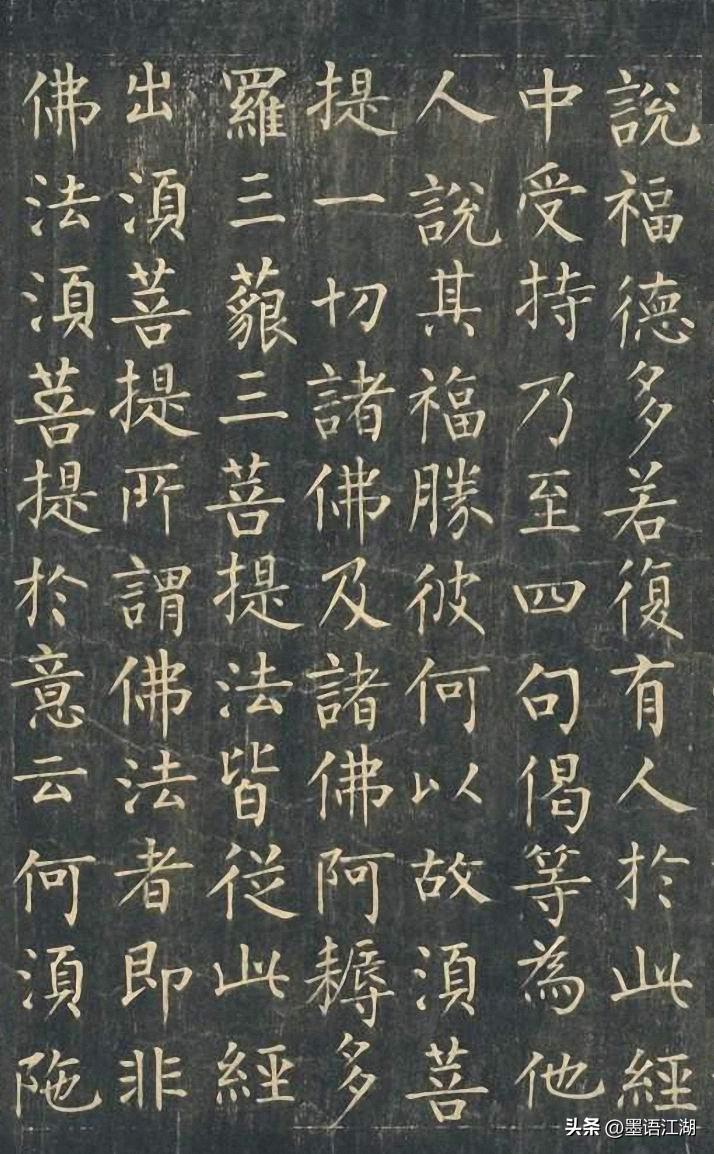 說福德多若復有人於此經
中受持乃至四句偈等為他
人說其福勝彼何以故須菩
提一切諸佛及諸佛阿耨多
羅三藐三菩提法皆從此經
出須菩提所謂佛法者即非
佛法須菩提於意云何須陁
头条 @墨语江湖